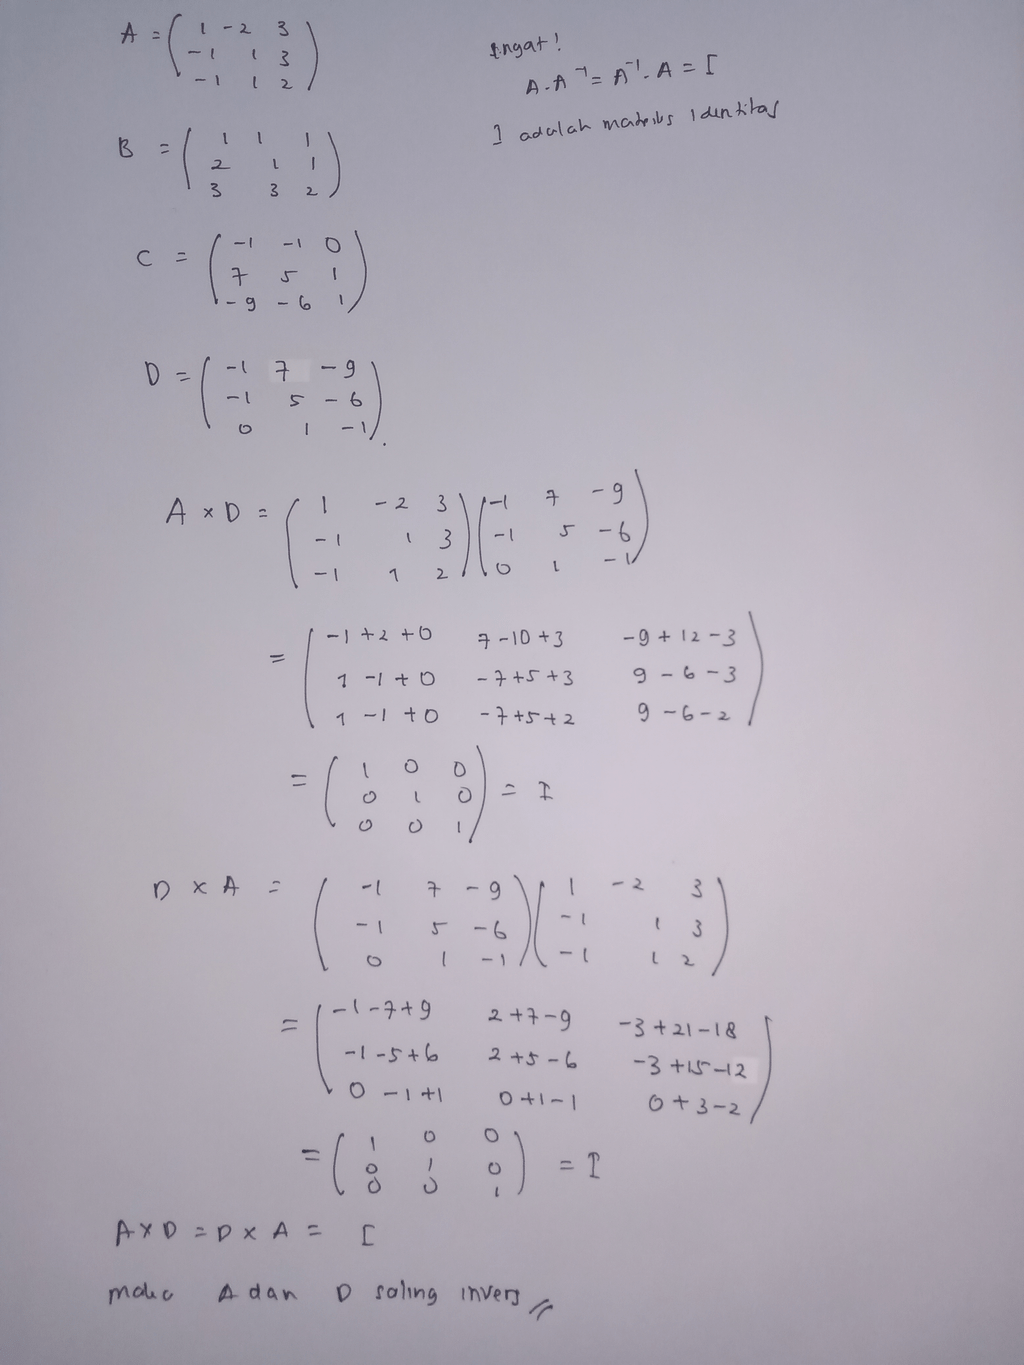 A = ( 1 -2 3
-1 1 3
-1 1 2 )
Ingat!
A.A⁻¹ = A⁻¹.A = I
I adalah matriks identitas
B = ( 1 1 1
2 1 1
3 3 2 )
C = ( -1 -1 0
7 5 1
-9 -6 1 )
D = ( -1 7 -9
-1 5 -6
0 1 -1 ).
A × D = ( 1 -2 3 ) ( -1 7 -9 )
( -1 1 3 ) ( -1 5 -6 )
( -1 1 2 ) ( 0 1 -1 )
= ( -1+2+0 7-10+3 -9+12-3
1-1+0 -7+5+3 9-6-3
1-1+0 -7+5+2 9-6-2 )
= ( 1 0 0
0 1 0
0 0 1 ) = I
D × A = ( -1 7 -9 ) ( 1 -2 3 )
( -1 5 -6 ) ( -1 1 3 )
( 0 1 -1 ) ( -1 1 2 )
= ( -1-7+9 2+7-9 -3+21-18
-1-5+6 2+5-6 -3+15-12
0-1+1 0+1-1 0+3-2 )
= ( 1 0 0
0 1 0
0 0 1 ) = I
A×D = D×A = I
maka A dan D saling invers //